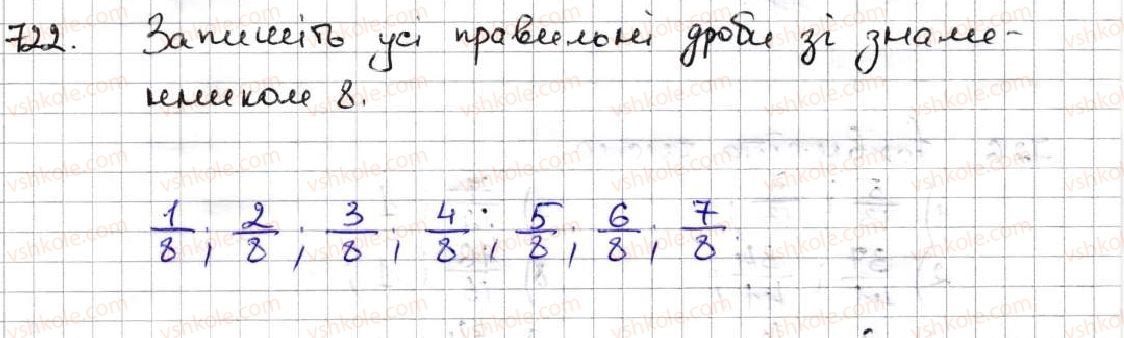 722. Запишіть усі правильні дроби зі знаме-
нником 8.
1/8; 2/8; 3/8; 4/8; 5/8; 6/8; 7/8.